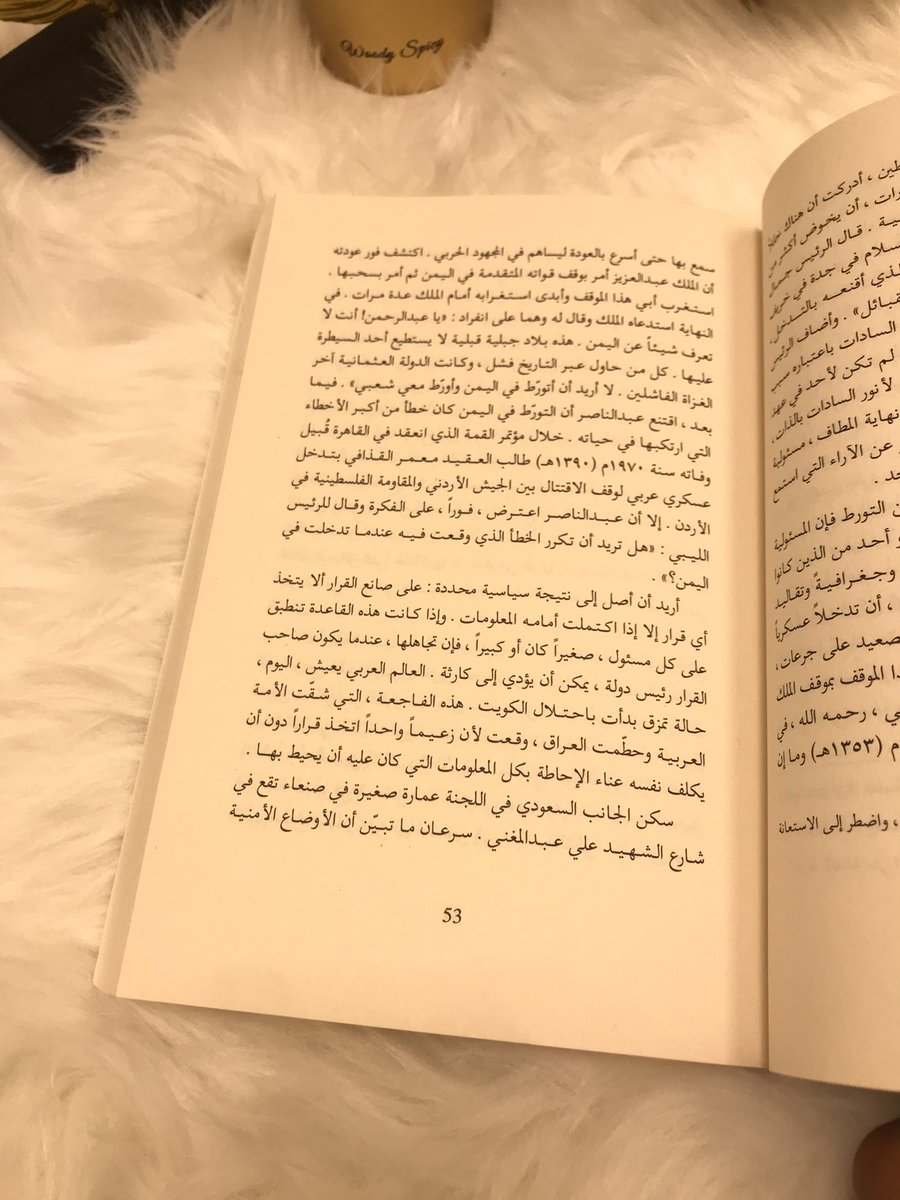 Woody Spicy
سمع بها حتى أسرع بالعودة ليساهم في المجهود الحربي . اكتشف فور عودته
أن الملك عبدالعزيز أمر بوقف قواته المتقدمة في اليمن ثم أمر بسحبها .
استغرب أبي هذا الموقف وأبدى استغرابه أمام الملك عدة مرات . في
النهاية استدعاه الملك وقال له وهما على انفراد : «يا عبدالرحمن! أنت لا
تعرف شيئاً عن اليمن . هذه بلاد جبلية قبلية لا يستطيع أحد السيطرة
عليها . كل من حاول عبر التاريخ فشل ، وكانت الدولة العثمانية آخر
الغزاة الفاشلين . لا أريد أن أتورّط في اليمن وأورّط معي شعبي» . فيما
بعد ، اقتنع عبدالناصر أن التورّط في اليمن كان خطأ من أكبر الأخطاء
التي ارتكبها في حياته . خلال مؤتمر القمة الذي انعقد في القاهرة قُبيل
وفاته سنة ١٩٧٠م (١٣٩٠هـ) طالب العقيد معمر القذافي بتدخل
عسكري عربي لوقف الاقتتال بين الجيش الأردني والمقاومة الفلسطينية في
الأردن . إلا أن عبدالناصر اعترض ، فوراً ، على الفكرة وقال للرئيس
الليبي : «هل تريد أن تكرر الخطأ الذي وقعت فيه عندما تدخلت في
اليمن؟» .
أريد أن أصل إلى نتيجة سياسية محددة : على صانع القرار ألا يتخذ
أي قرار إلا إذا اكتملت أمامه المعلومات . وإذا كانت هذه القاعدة تنطبق
على كل مسئول ، صغيراً كان أو كبيراً ، فإن تجاهلها ، عندما يكون صاحب
القرار رئيس دولة ، يمكن أن يؤدي إلى كارثة . العالم العربي يعيش ، اليوم ،
حالة تمزق بدأت باحتلال الكويت . هذه الفاجعة ، التي شقّت الأمة
العربية وحطّمت العراق ، وقعت لأن زعيماً واحداً اتخذ قراراً دون أن
يكلف نفسه عناء الإحاطة بكل المعلومات التي كان عليه أن يحيط بها .
سكن الجانب السعودي في اللجنة عمارة صغيرة في صنعاء تقع في
شارع الشهيد علي عبدالمغني . سرعان ما تبيّن أن الأوضاع الأمنية
53
، أدركت أن هناك
، أن يخوض أكثر من
. قال الرئيس جمال
في جدة في خريف
الذي أقنعه بالتدخل،
» . وأضاف الرئيس
السادات باعتباره سبب
لم تكن لأحد في عهد
لأنور السادات بالذات،
نهاية المطاف ، مسئولية
عن الآراء التي استمع
التورط فإن المسئولية
أحد من الذين كانوا
وجغرافيةً وتقاليد
، أن تدخلاً عسكرياً
على جرعات،
الموقف بموقف الملك
، رحمه الله ، في
(١٣٥٣هـ) وما إن
، واضطر إلى الاستعانة